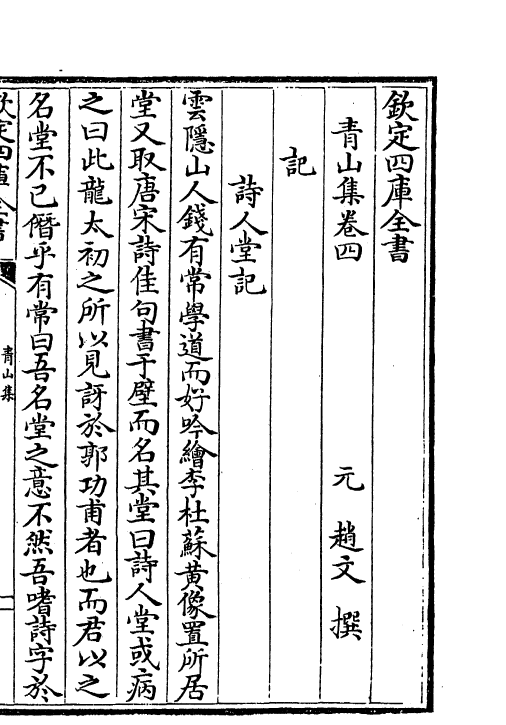 欽定四庫全書
青山集卷四
元 趙文 撰
記
詩人堂記
雲隱山人錢有常學道而好吟繪李杜蘇黄像置所居
堂又取唐宋詩佳句書于壁而名其堂曰詩人堂或病
之曰此龍太初之所以見訝於郭功甫者也而君以之
名堂不已僭乎有常曰吾名堂之意不然吾嗜詩字於
欽定四庫全書
青山集